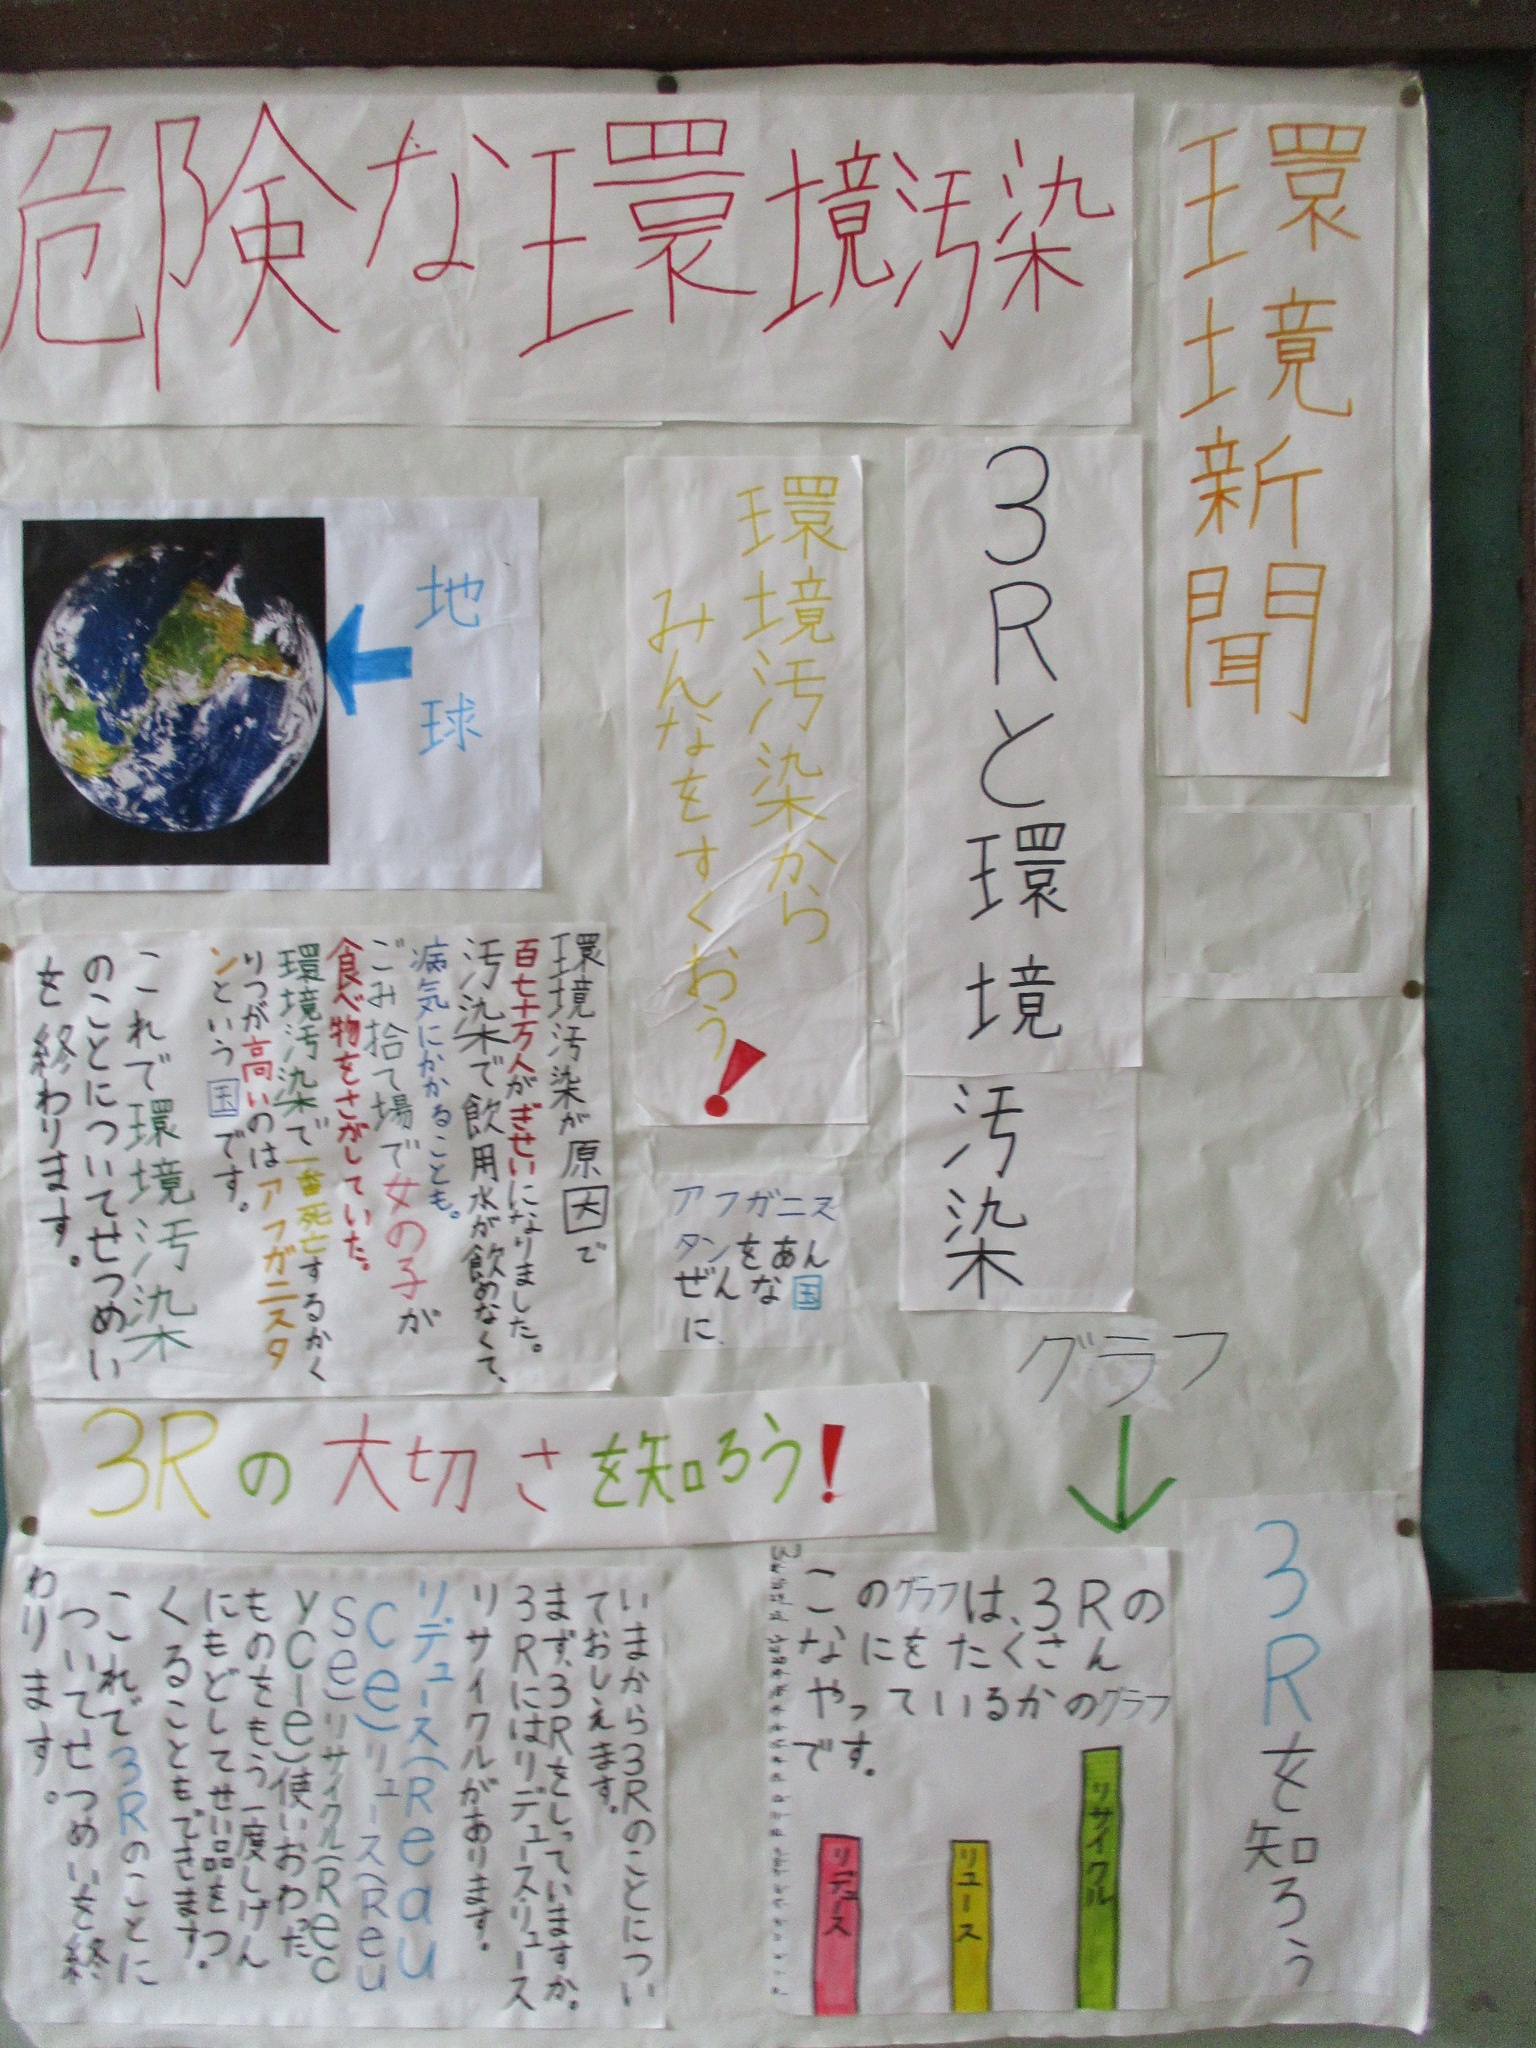 環境新聞
危険な環境汚染
3Rと環境
汚染
環境汚染から
みんなをすくおう!
地球
環境汚染が原因で
百七十万人がぎせいになりました。
汚染で飲用水が飲めなくて、
病気にかかることも。
ごみ拾て場で女の子が
食べ物をさがしていた。
環境汚染で一番死亡するかく
りつが高いのはアフガニスタ
ンという国です。
これで環境汚染
のことについてせつめい
を終わります。
アフガニス
タンをあん
ぜんな国
に
グラフ
3Rの大切さを知ろう!
3Rを知ろう
このグラフは、3Rの
なにをたくさん
やっているかのグラフ
です。
リデュース
リユース
リサイクル
いまから3Rのことについ
ておしえます。
まず、3Rをしっていますか。
3Rにはリデュース・リユース
リサイクルがあります。
リデュース(Reau
ce)リユース(Reu
se)リサイクル(Rec
ycle)使いおわった
ものをもう一度しげん
にもどしてせい品をつ
くることもできます。
これで3Rのことに
ついてせつめいを終
わります。